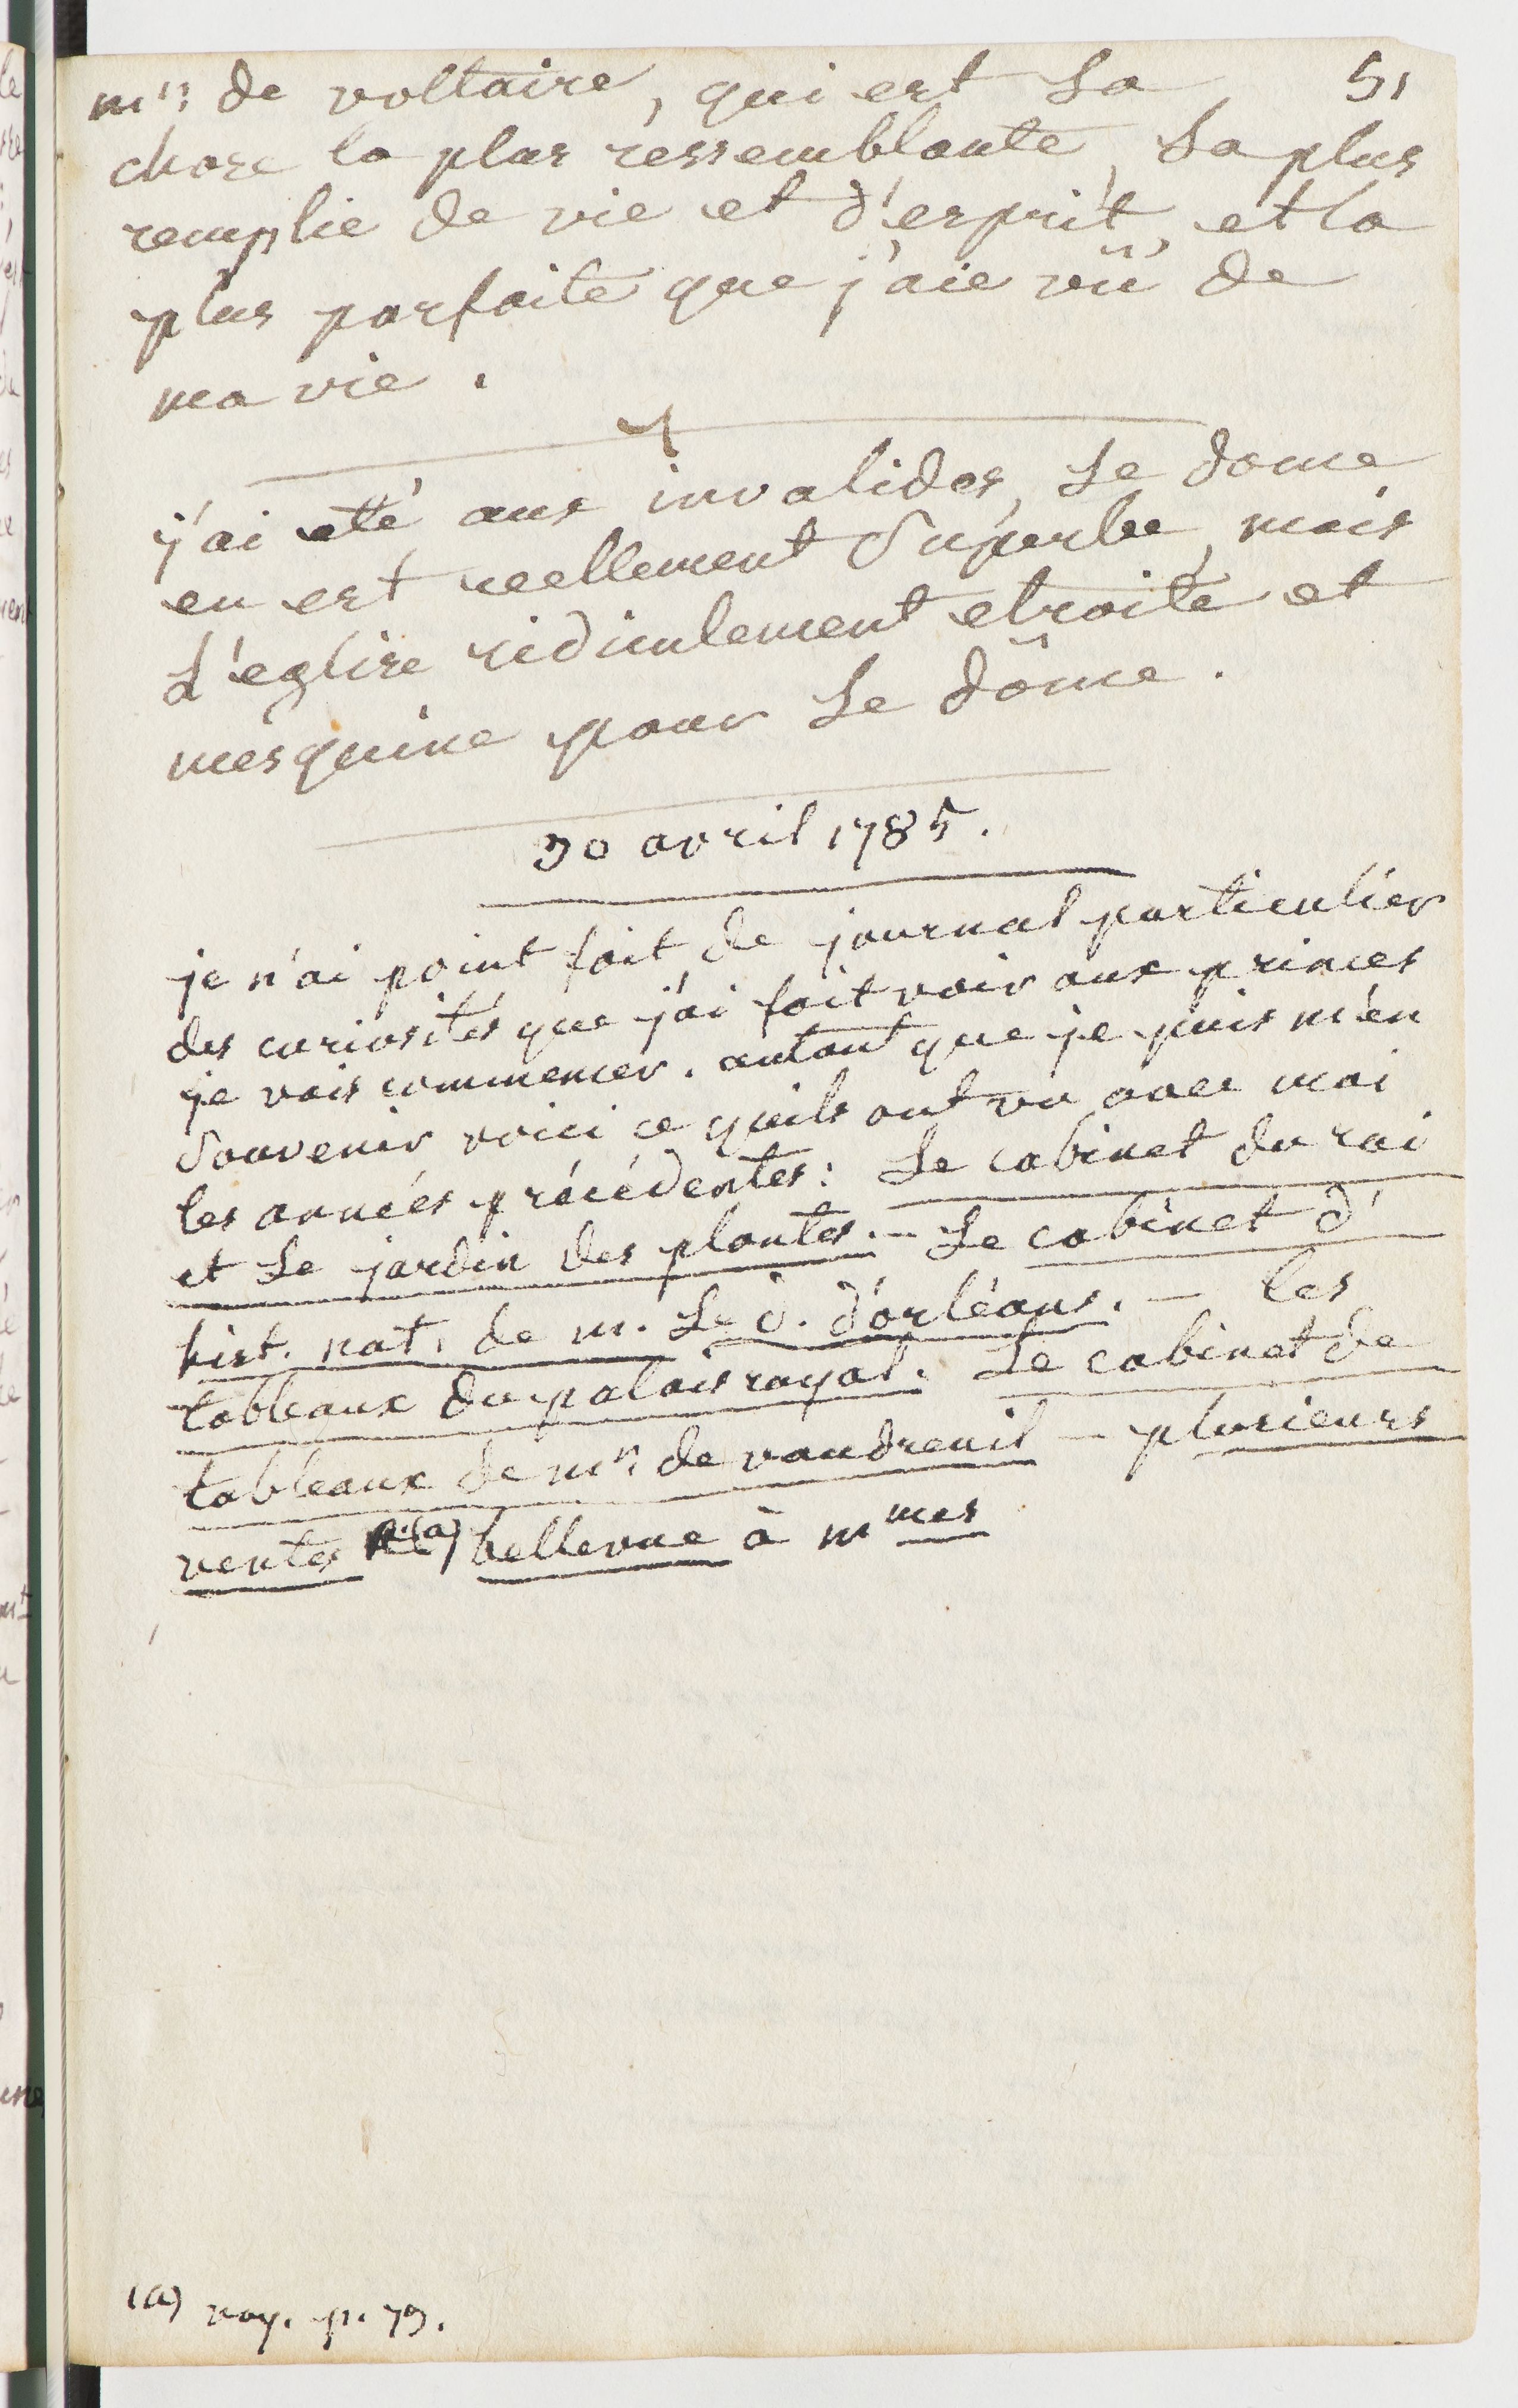 mr: de voltaire, qui est la 51
chose la plus ressemblante, la plus
remplie de vie et d'esprit, et la
plus parfaite que j'aie vû de
ma vie.
j'ai été aux invalides, le dome
en est reellement superbe, mais
l'eglise ridiculement etroite et
mesquine pour le dôme.
30 avril 1785.
je n'ai point fait de journal particulier
des curiosités que j'ai fait voir aux princes
je vais commencer. autant que je puis m'en
souvenir voici ce qu'ils ont vu avec moi
les années précédentes: le cabinet du roi
et le jardin des plantes. — le cabinet d'
hist. nat. de m. le d. d'orléans. — les
tableaux du palais royal. le cabinet de
tableaux de mr: de vaudreuil — plusieurs
ventes (a) bellevue à mmes
(a) voy. p. 79.